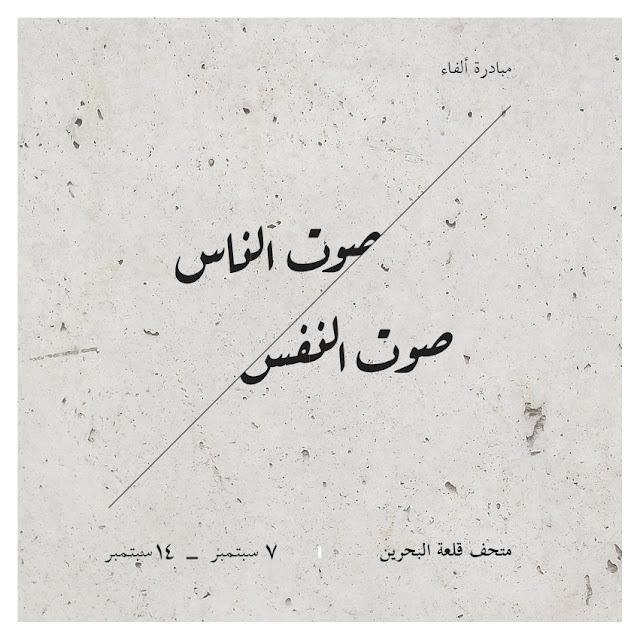 مبادرة ألفاء
صوت الناس
صوت النفس
متحف قلعة البحرين | ٧ سبتمبر – ١٤ سبتمبر